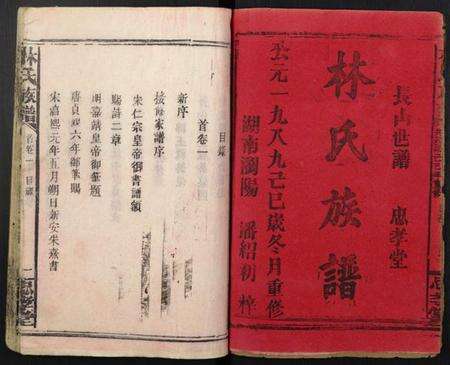 長山世譜 忠孝堂
林氏族譜
公元一九八九己巳歲冬月重修
湖南瀏陽 潘紹初梓
林氏族譜 卷一 目錄 一
目錄
首卷一
新序
宋仁宗皇帝御書譜頌
賜詩二章
明嘉靖皇帝御題
唐貞觀六年御賜
宋嘉熙元年五月朔日新安朱熹書